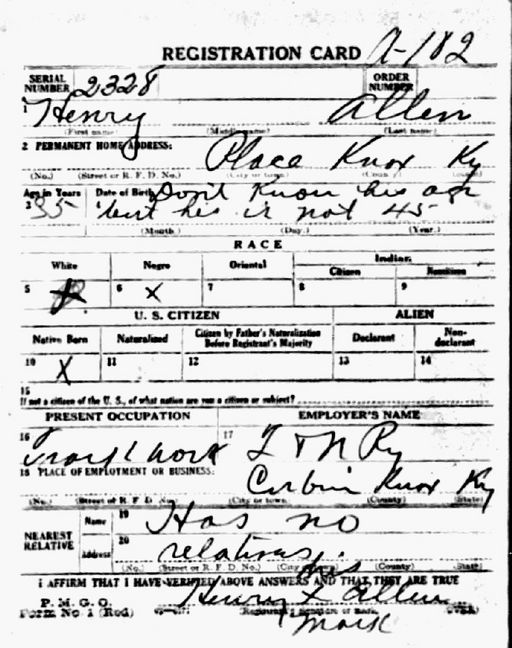 REGISTRATION CARD A-182
SERIAL NUMBER 2328 ORDER NUMBER
1 Henry Allen
(First name) (Middle name) (Last name)
2 PERMANENT HOME ADDRESS: Place Knox Ky
(No.) (Street or R. F. D. No.) (City or town) (County) (State)
Age in Years Date of Birth Don't Know his age
3 35 4 but he is not 45
(Month) (Day.) (Year.)
RACE
White Negro Oriental Indian
Citizen Noncitizen
5 6 X 7 8 9
U. S. CITIZEN ALIEN
Native Born Naturalized Citizen by Father's Naturalization Before Registrant's Majority Declarant Non-declarant
10 X 11 12 13 14
15
If not a citizen of the U. S., of what nation are you a citizen or subject?
PRESENT OCCUPATION EMPLOYER'S NAME
16 work 17 L & N Ry
18 PLACE OF EMPLOYMENT OR BUSINESS: Corbin Knox Ky
(No.) (Street or R. F. D. No.) (City or town) (County) (State)
NEAREST RELATIVE Name 19 Has no
Address 20 relatives.
(No.) (Street or R. F. D. No.) (City or town) (County) (State)
I AFFIRM THAT I HAVE VERIFIED ABOVE ANSWERS AND THAT THEY ARE TRUE
P. M. G. O. his
Form No. 1 (Red) Henry X Allen
(Registrant's signature or mark) (OVER)
mark